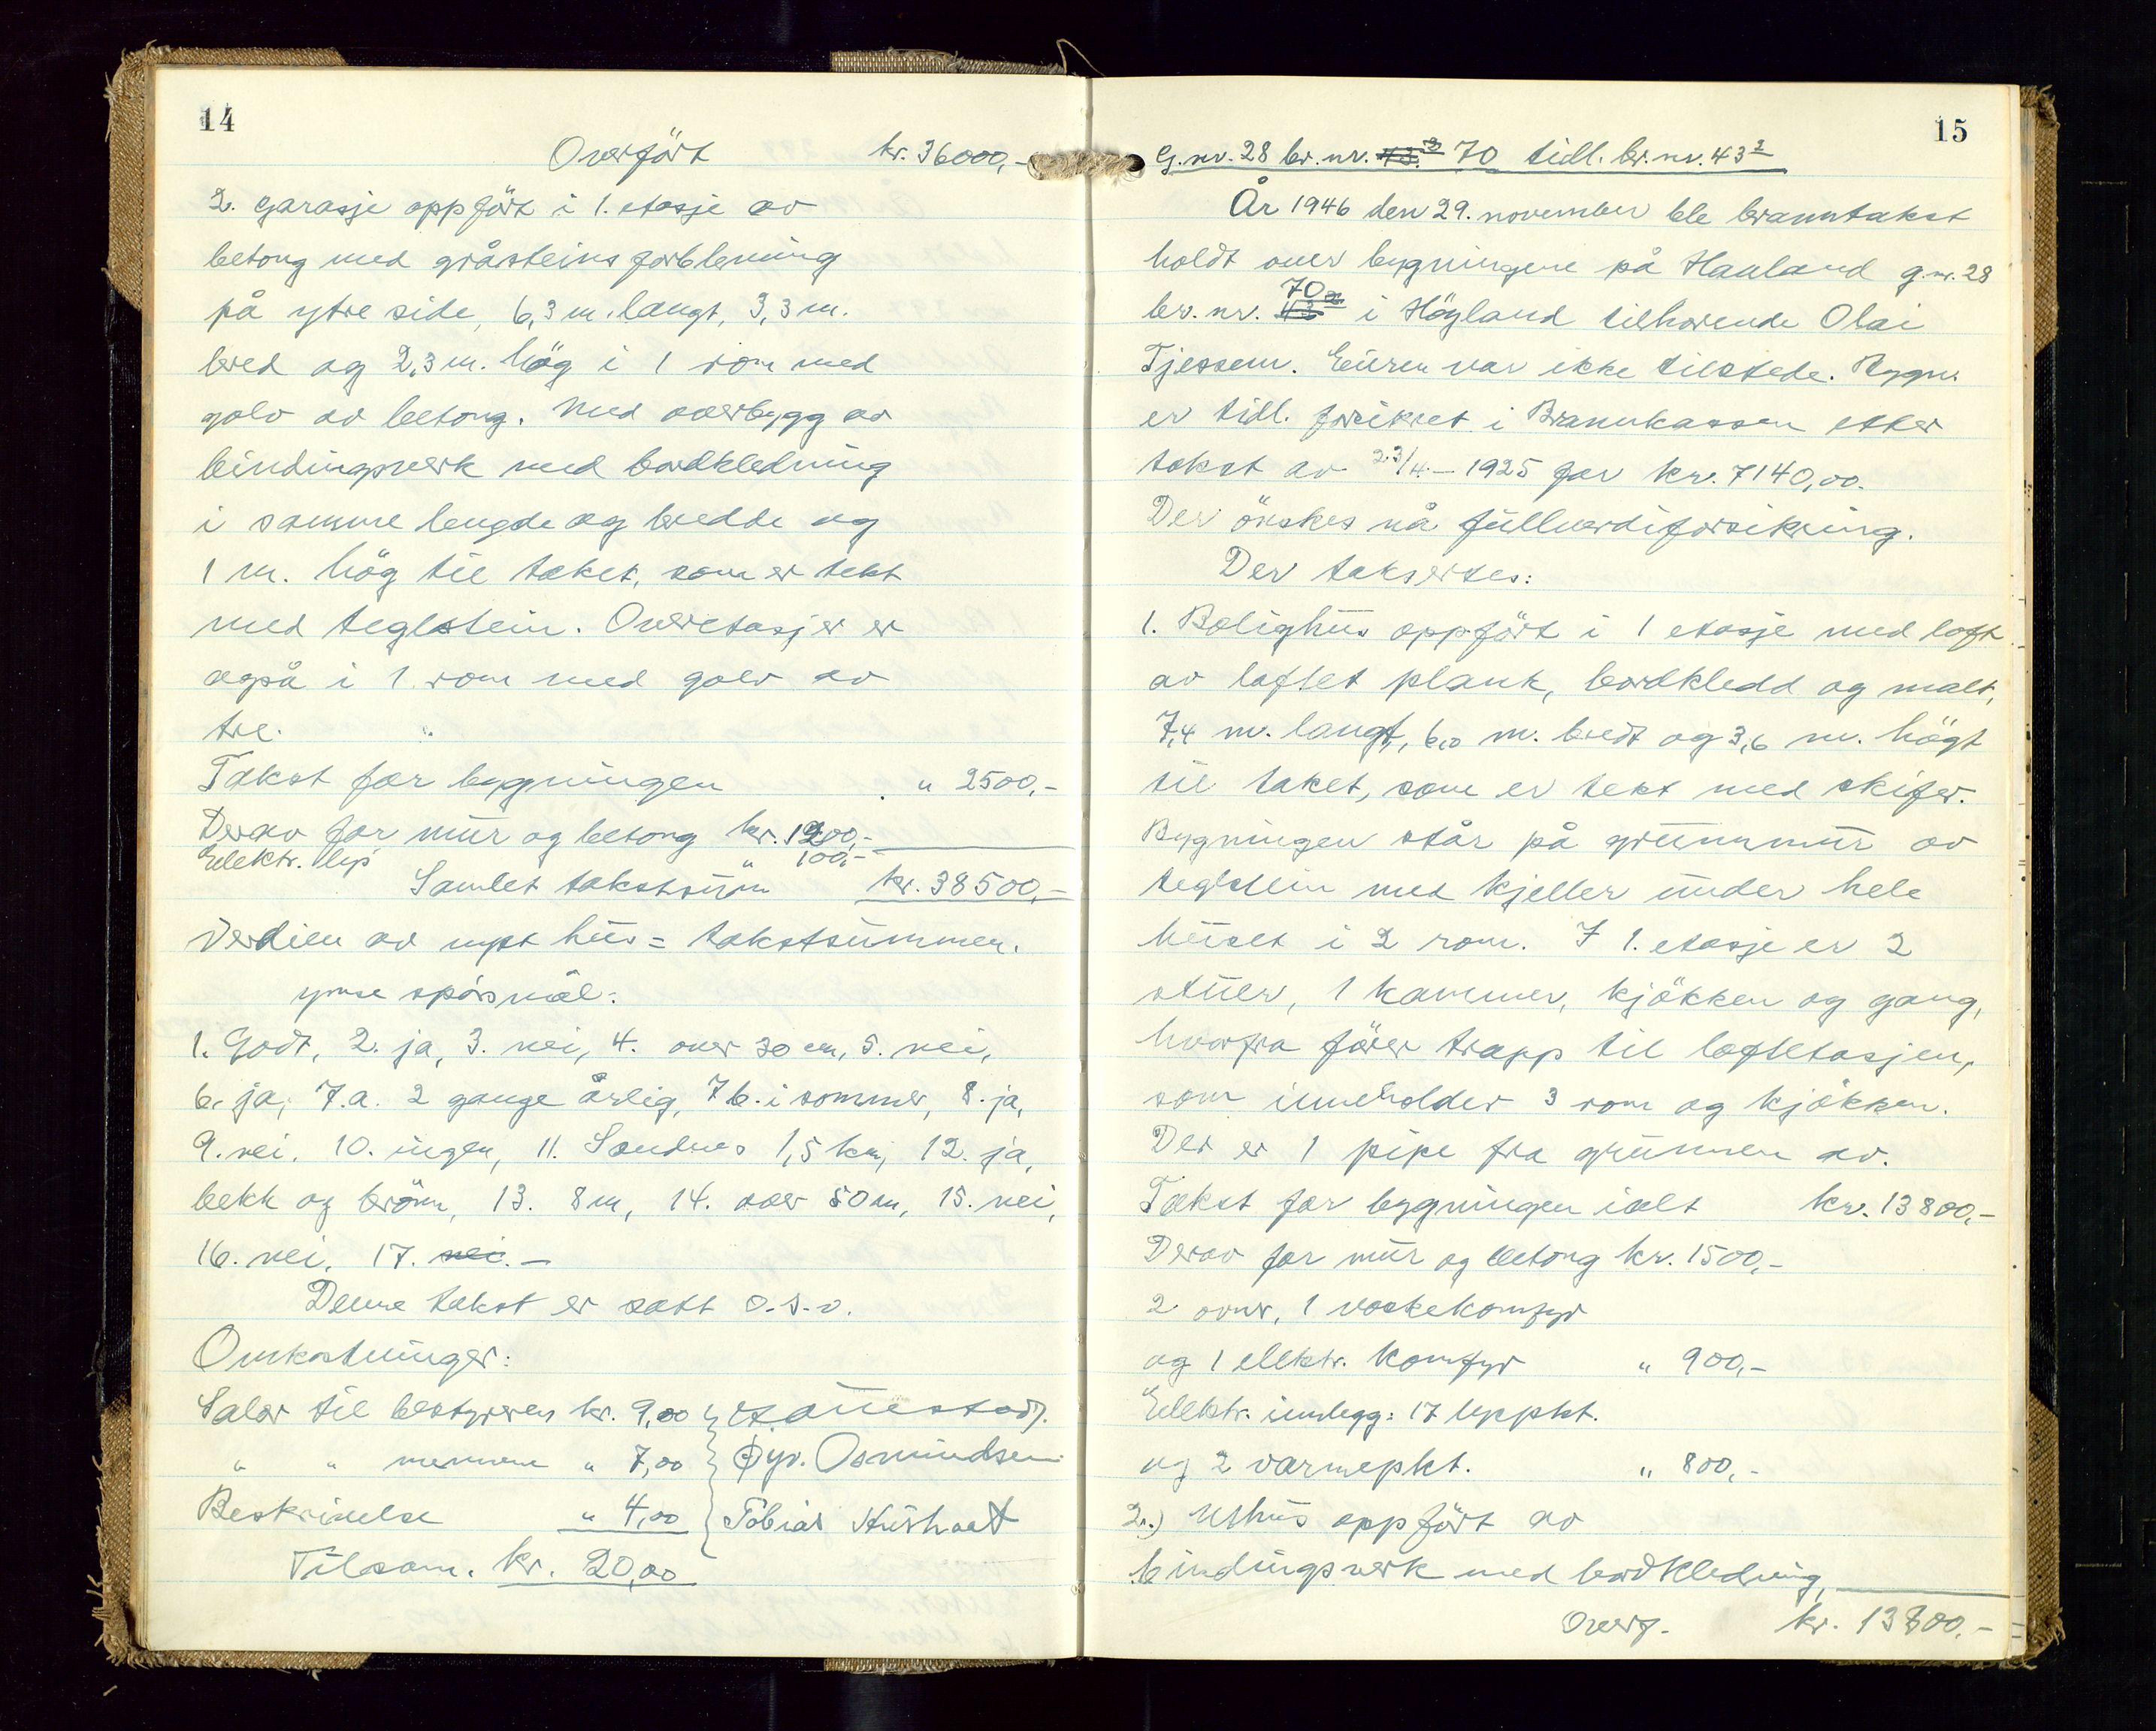 14
Overfört kr. 36000,-
2. garasje oppfört i 1. etasje av
betong med gråsteins forblening
på ytre side, 6,3 m. langt, 3,3 m.
bred og 2,3 m. hög i 1 rom med
golv av betong. Med overbygg av
bindingsverk med bordkledning
i samme lengde og bredde og
1 m. hög til taket, som er tekt
med teglstein. Overetasjer er
også i 1 rom med golv av
tre.
Takst for bygningen " 2500,-
Derav for mur og betong kr. 1200,-
Elektr. lys " 100,-
Samlet takstsum kr. 38500,-
Verdien av nytt hus = takstsummen.
ymse spörsmål:
1. Godt, 2. ja, 3. nei, 4. over 30 cm, 5. nei,
6. ja, 7.a. 2 gange årlig, 7b. i sommer, 8. ja,
9. nei. 10. ingen, 11. Sandnes 1,5 km, 12. ja,
bekk og brönn, 13. 8 m, 14. over 50 m, 15. nei,
16. nei, 17. nei. -
Denne takst er satt o.s.v.
Omkostninger:
Salær til bestyreren kr. 9,00
" " mennene " 7,00 Öyv. Osmundsen
Beskrivelse " 4,00 Tobias
Tilsam. kr. 20,00
15
G.nr. 28 br.nr. 43.2 70 tidl. br.nr. 43 2
År 1946 den 29. november ble branntakst
holdt over bygningene på Hauland g.nr. 28
br. nr. 43 2 70 i Höyland tilhörende Olai
Tjessem. Eieren var ikke tilstede. Bygn.
er tidl. forsikret i Brannkassen etter
takst av 23/4 - 1925 for kr. 7140,00.
Der önskes nå fullverdiforsikring.
Der takseres:
1. Bolighus oppfört i 1 etasje med loft
av laftet plank, bordkledd og malt,
7,4 m. langt, 6,0 m. bredt og 3,6 m. högt
til taket, som er tekt med skifer.
Bygningen står på grunnmur av
teglstein med kjeller under hele
huset i 2 rom. I 1. etasje er 2
stuer, 1 kammer, kjökken og gang,
hvorfra förer trapp til loftetasjen,
som inneholder 3 rom og kjökken.
Der er 1 pipe fra grunnen av.
Takst for bygningen ialt kr. 13800,-
Derav for mur og betong kr. 1500,-
2 ovner, 1 vaskekomfyr
og 1 elektr. komfyr " 900,-
Elektr. innlegg: 17 lyspkt.
og 2 varmepkt. " 800,-
2.) Uthus oppfört av
bindingsverk med bordkledning,
Overf. kr. 13800,-